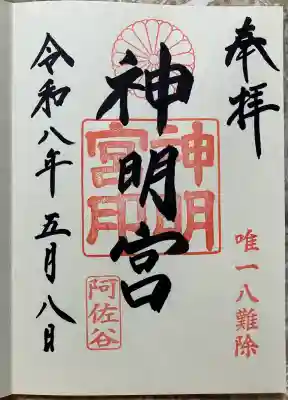 奉拝
唯一八難除
神明宮
神明宮印
阿佐谷
令和八年五月八日